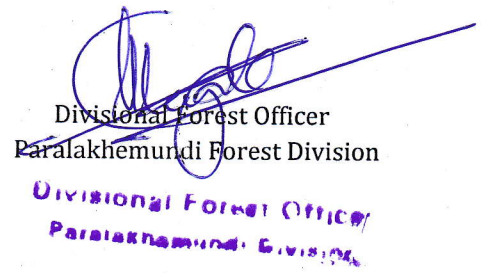 Divisional Forest Officer
Paralakhemundi Forest Division
Divisional Forest Officer
Paralakhemundi Division